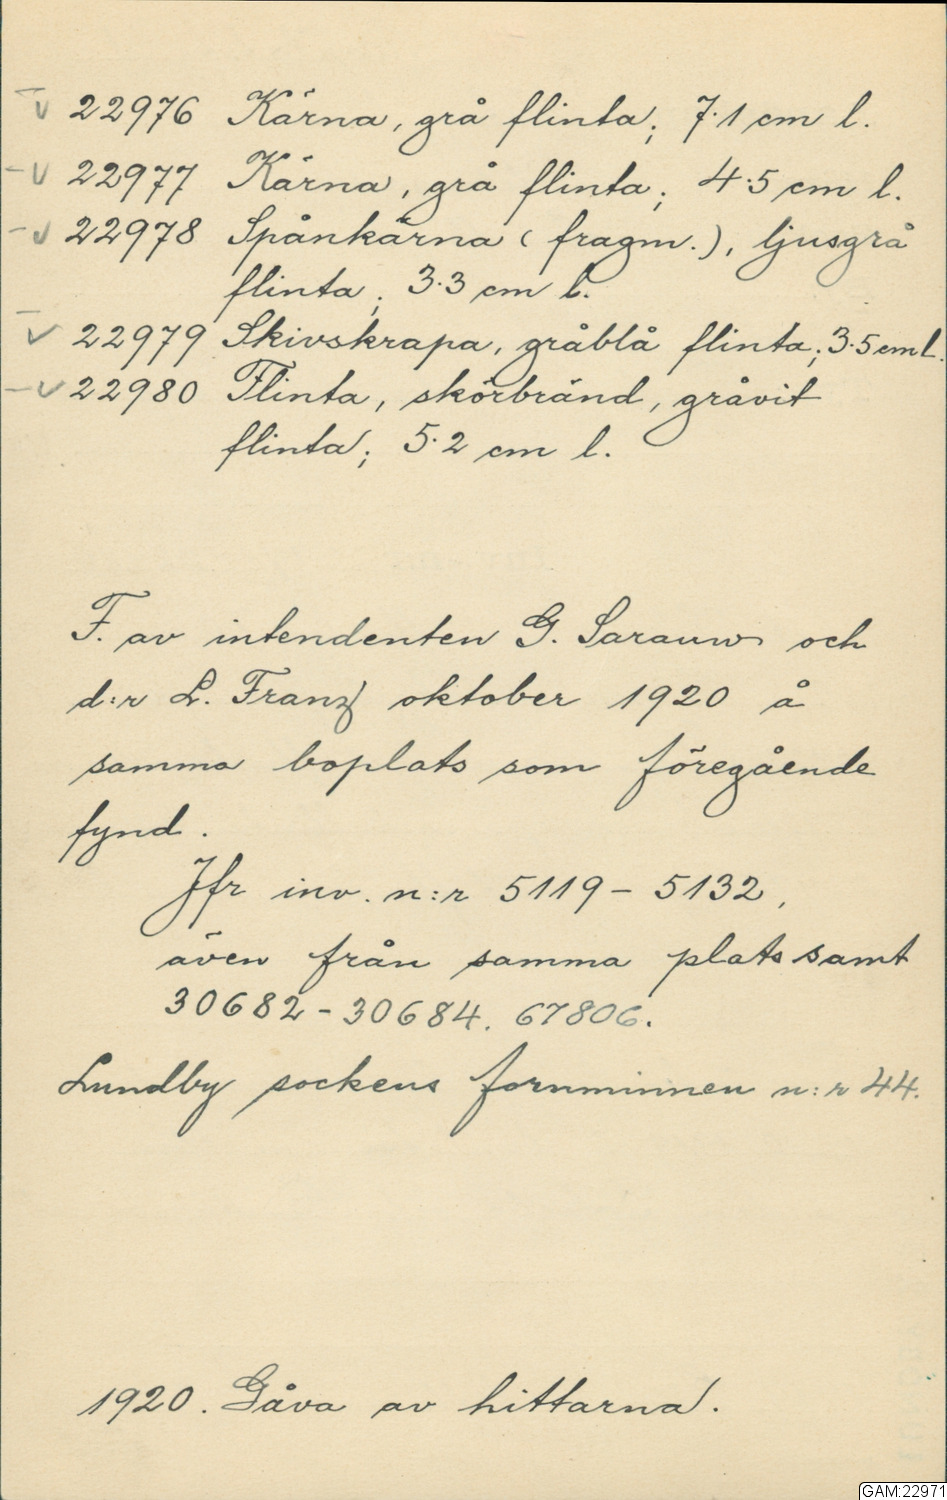 22976 Kärna, grå flinta; 7.1 cm l.
22977 Kärna, grå flinta; 4.5 cm l.
22978 Spånkärna (fragm.), ljusgrå
flinta; 3.3 cm l.
22979 Skivskrapa, gråblå flinta; 3.5 cm l.
22980 Flinta, skörbränd, gråvit
flinta; 5.2 cm l.
F. av intendenten G. Sarauw och
d:r L. Franz oktober 1920 å
samma boplats som föregående
fynd.
Jfr inv. n:r 5119-5132,
även från samma plats samt
30682-30684. 67806.
Lundby sockens fornminnen n:r 44.
1920. Gåva av hittarna.
GAM:22971